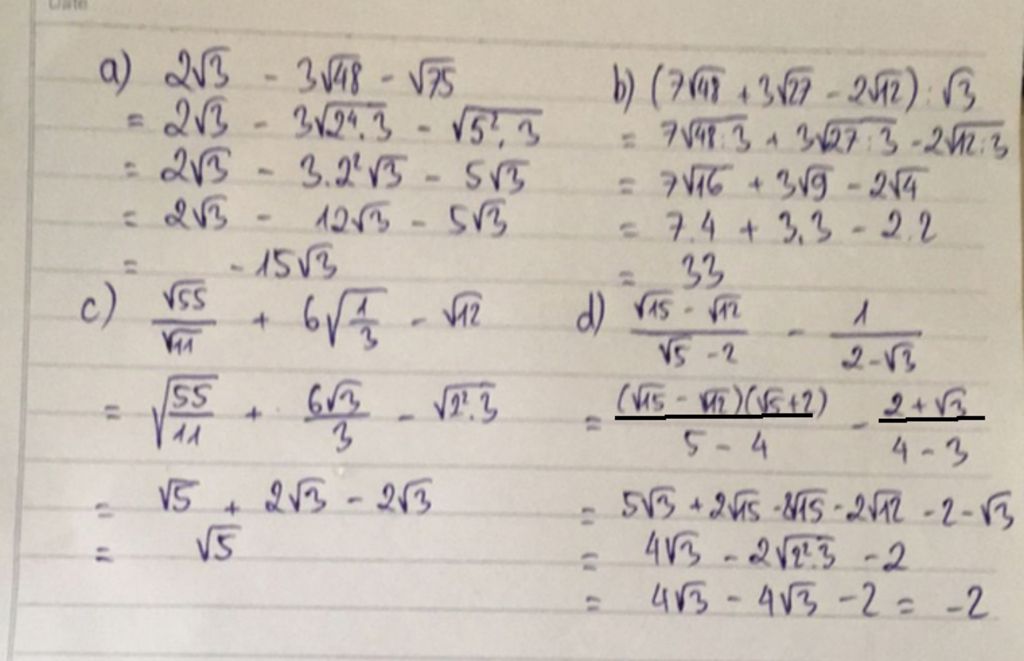 Date
a) 2√3 - 3√48 - √75
= 2√3 - 3√2⁴.3 - √5².3
= 2√3 - 3.2²√3 - 5√3
= 2√3 - 12√3 - 5√3
= -15√3
b) (7√48 + 3√27 - 2√12) : √3
= 7√48:3 + 3√27:3 - 2√12:3
= 7√16 + 3√9 - 2√4
= 7.4 + 3.3 - 2.2
= 33
c) √55/√11 + 6√1/3 - √12
= √55/11 + 6√3/3 - √2².3
= √5 + 2√3 - 2√3
= √5
d) (√15 - √12)/(√5 - 2) - 1/(2-√3)
= (√15 - √12)(√5+2)/(5 - 4) - (2+√3)/(4 - 3)
= 5√3 + 2√15 - 2√15 - 2√12 - 2 - √3
= 4√3 - 2√2².3 - 2
= 4√3 - 4√3 - 2 = -2